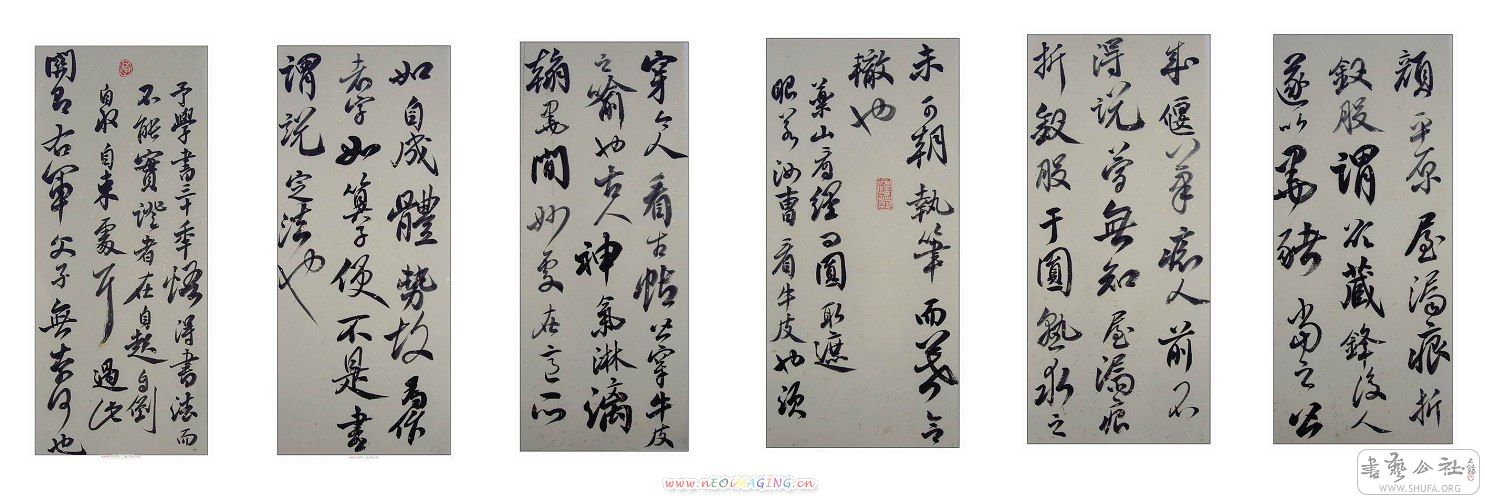 顏平原屋漏痕折
釵股謂欲藏鋒後人
遂以墨豬當之皆
成偃筆癡人前不
得說夢無知屋漏痕
折釵股于圓熟求之
未可朝執筆而暮合
轍也
藥山看經曰圓取遮
眼若汝曹看牛皮也須
穿今人看古帖皆穿牛皮
之喻也古人神氣淋漓
翰墨間妙處在意所
如自成體勢故為作
者字如算子便不是書
謂說定法也
予學書三十年悟得書法而
不能實證者在自起自倒
自收自束處耳過此
關即右軍父子無奈何也
www.nEOiMAGING.cn
書藝公社
WWW.SHUFA.ORG